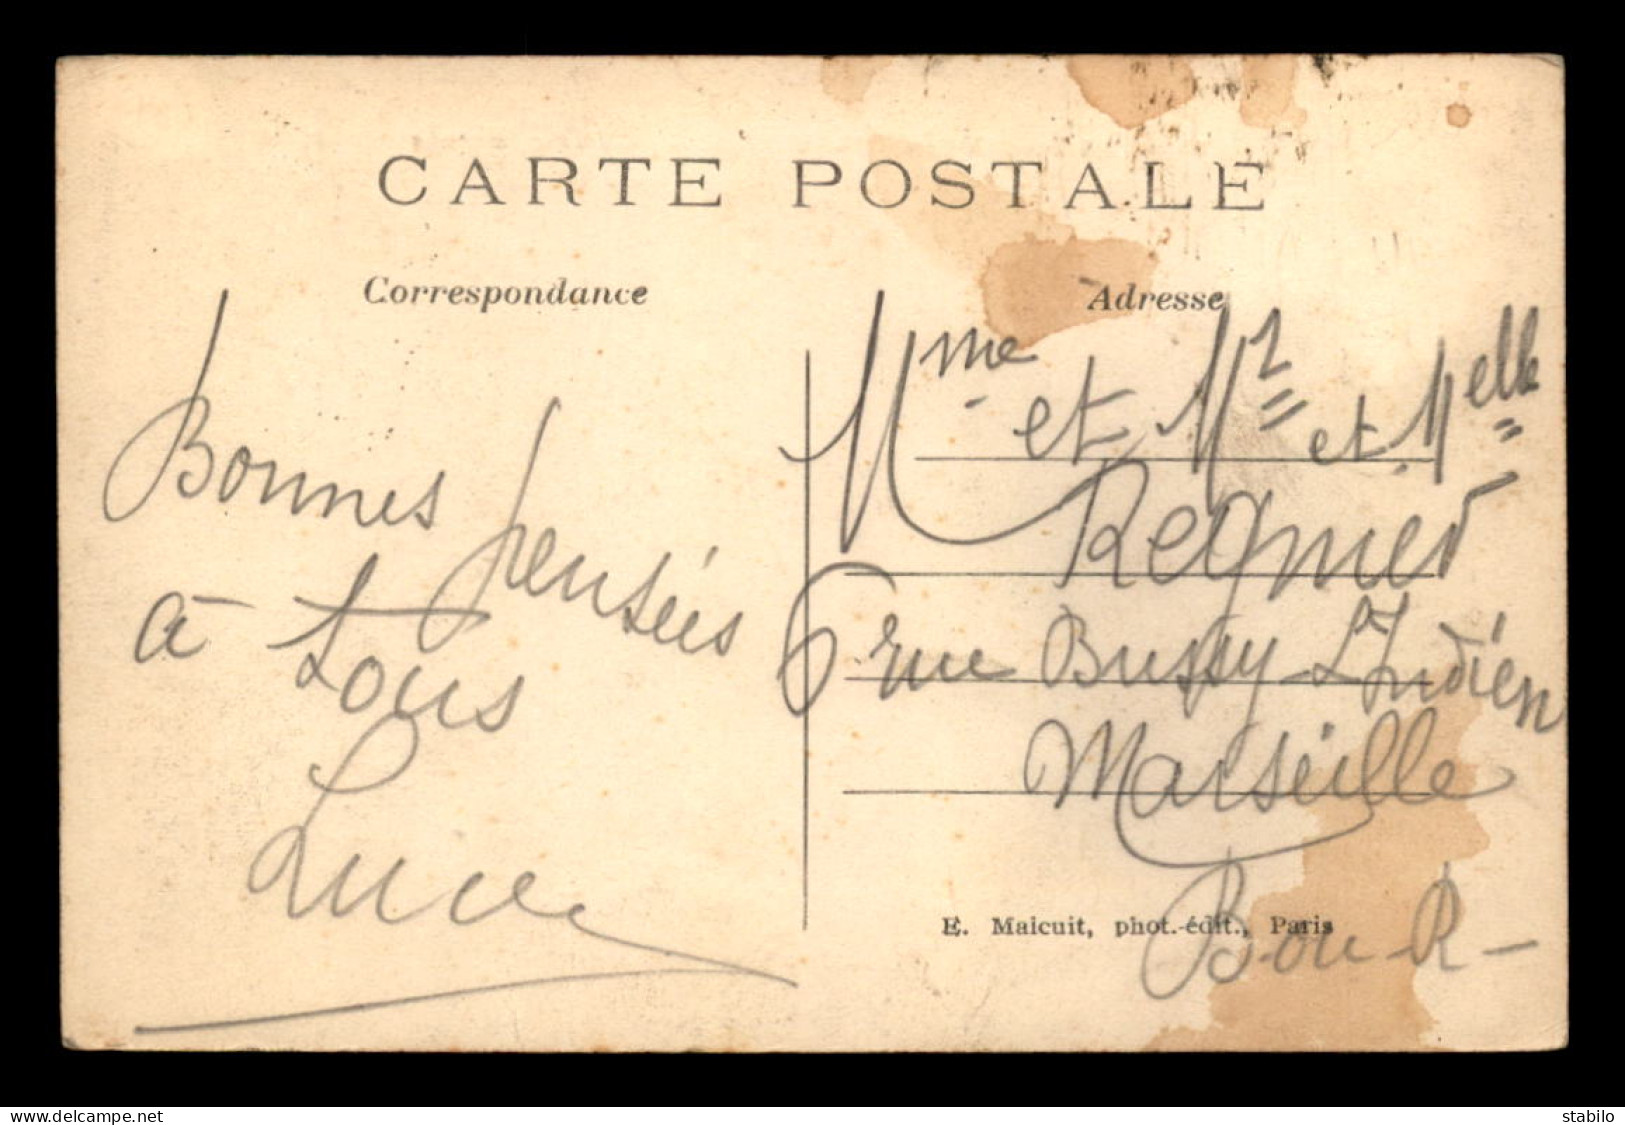 CARTE POSTALE
Correspondance
Bonnes pensées
à tous
Luce
Adresse
Mme et Mr et Melle
Regnier
6 rue Bussy-L'Indien
Marseille
B-ou-R-
E. Malcuit, phot.-édit., Paris
www.delcampe.net
stabilo